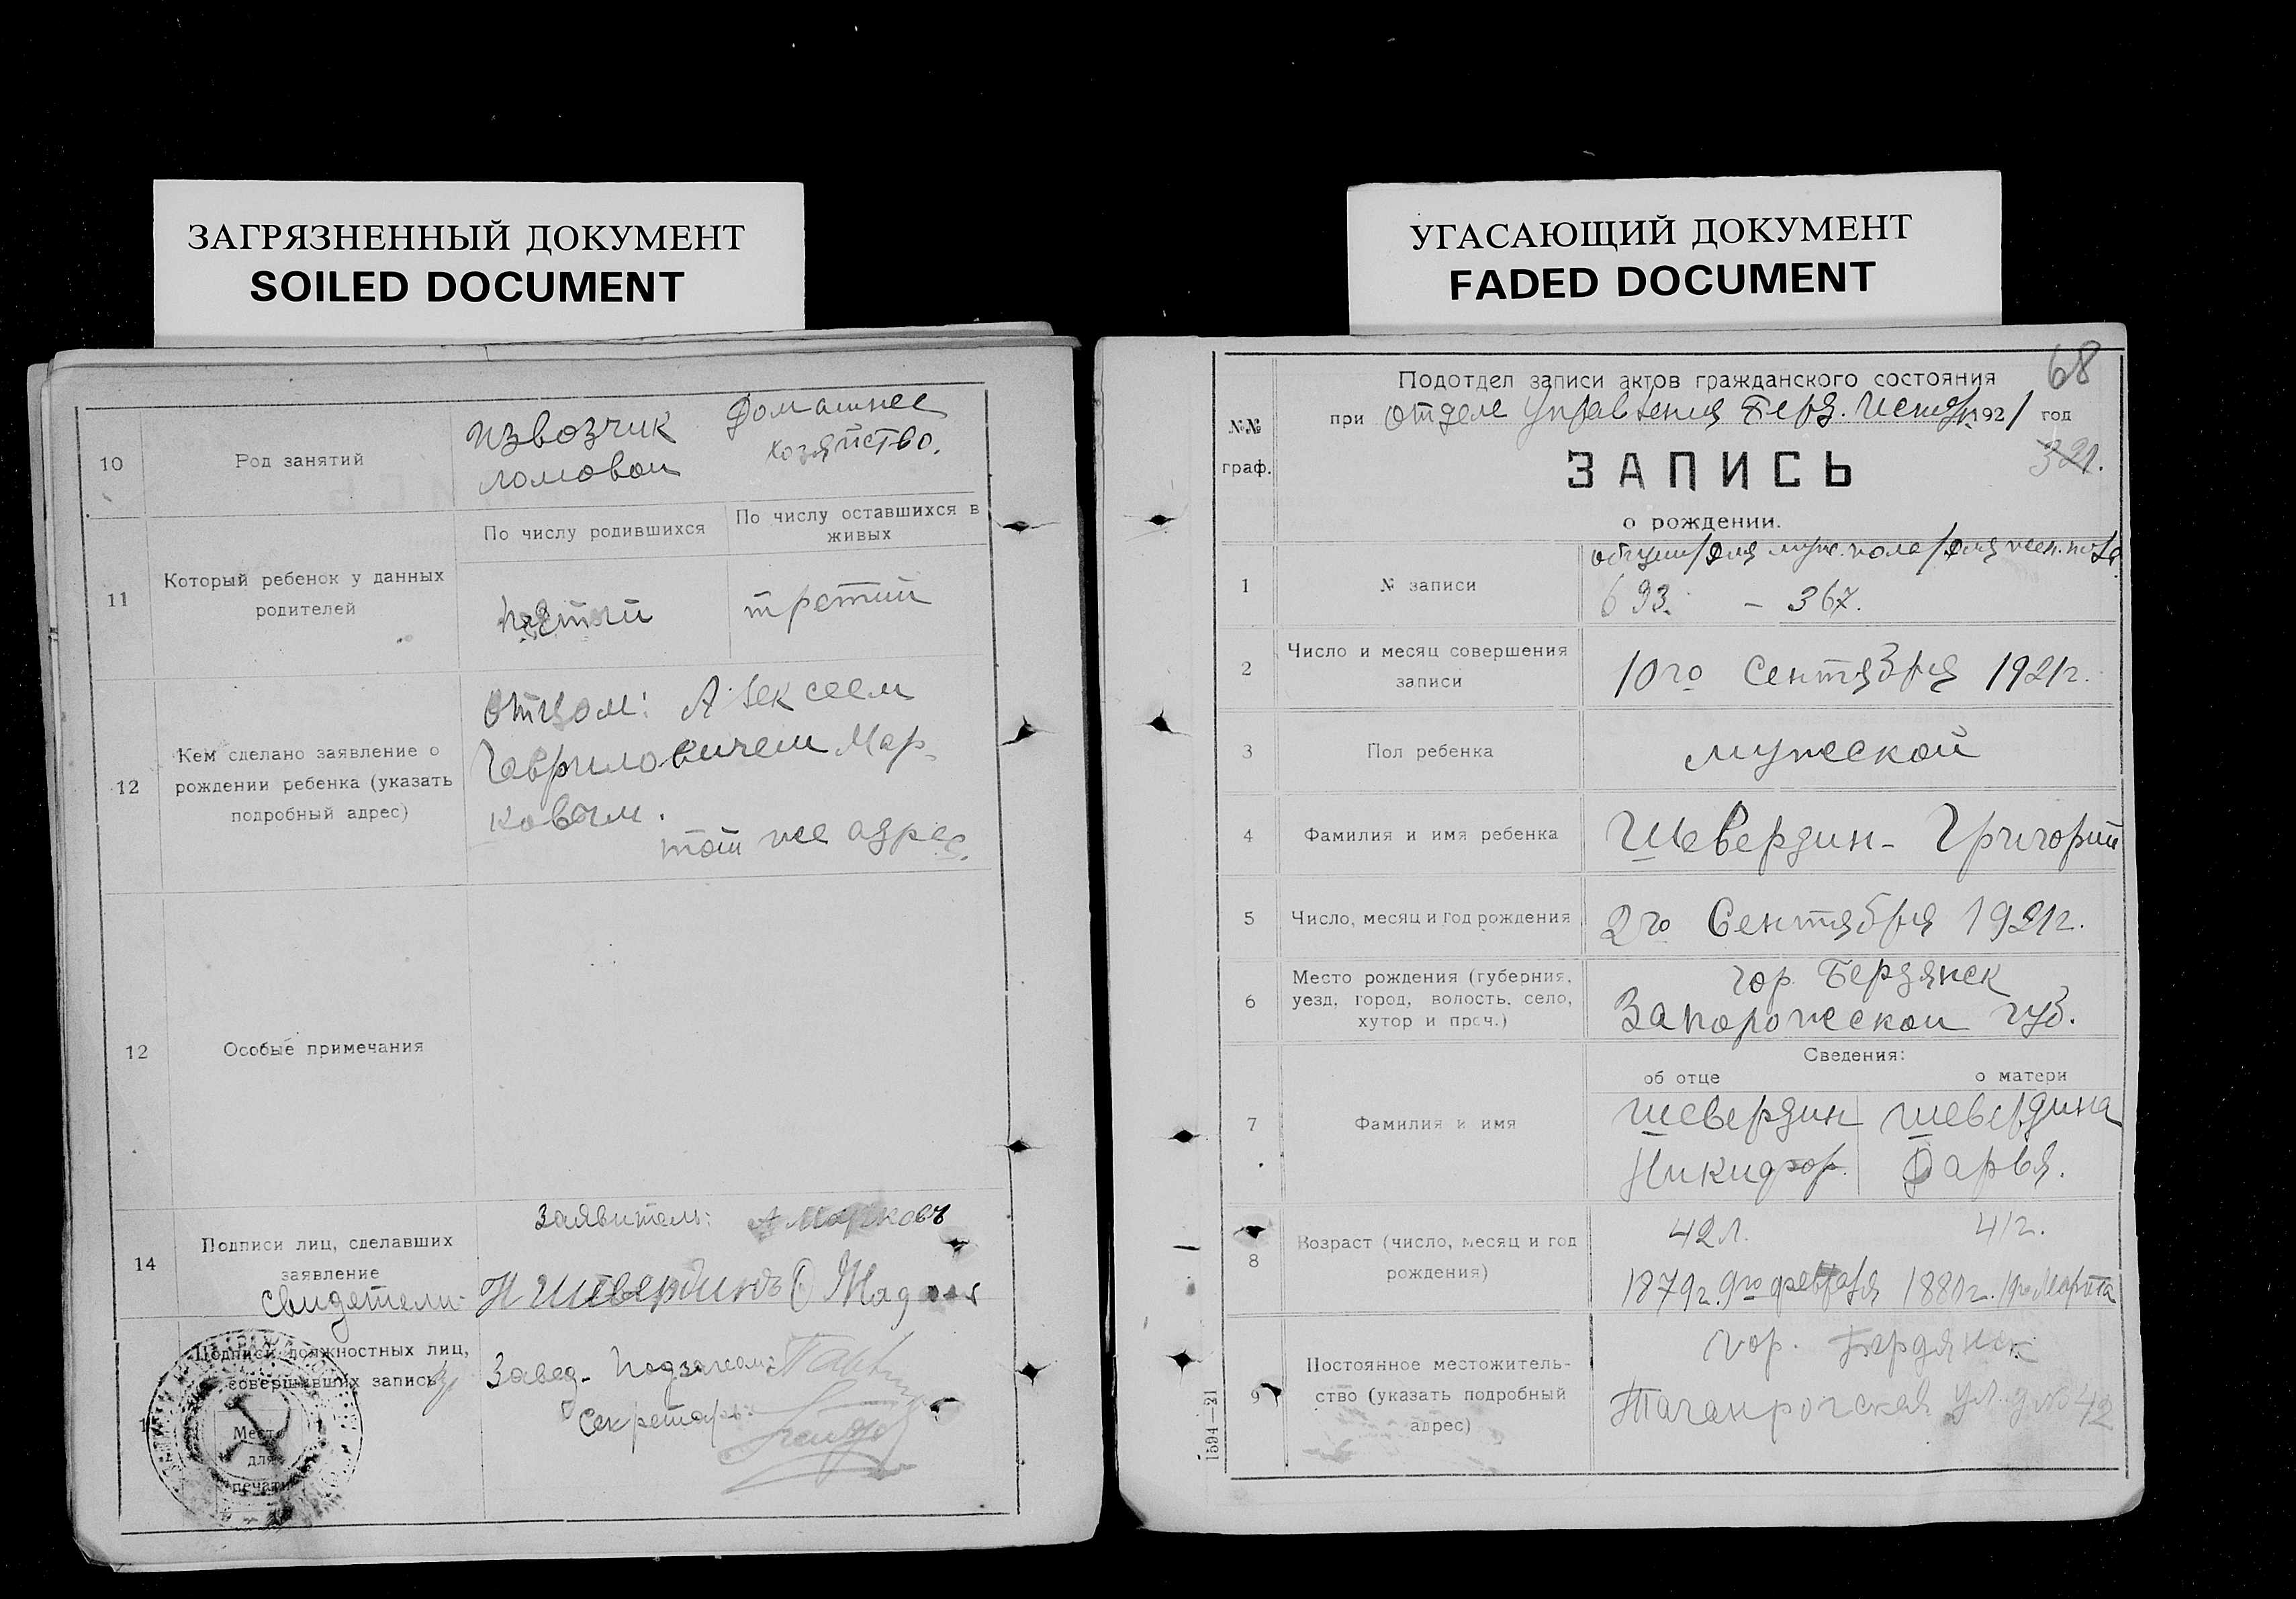 ЗАГРЯЗНЕННЫЙ ДОКУМЕНТ
SOILED DOCUMENT
10
Род занятий
извозчик
ломовой
Домашнее
хозяйство.
11
Который ребенок у данных
родителей
По числу родившихся
По числу оставшихся в
живых
пятый
третий
12
Кем сделано заявление о
рождении ребенка (указать
подробный адрес)
отцом: Алексеем
Гавриловичем Мар-
ковым.
тот же адрес.
12
Особые примечания
14
Подписи лиц, сделавших
заявление
свидетели-
Заявитель: А Марковъ
Н Шевердинъ
Подписи должностных лиц,
совершивших запись
Место
для
печати
Завед.
Секретарь:
УГАСАЮЩИЙ ДОКУМЕНТ
FADED DOCUMENT
68
№№
граф.
Подотдел записи актов гражданского состояния
при Отделе Управления Берд. 1921 год
321.
ЗАПИСЬ
о рождении.
1
№ записи
общий/для муж. пола/для жен. пола
693. – 367.
2
Число и месяц совершения
записи
10го Сентября 1921г.
3
Пол ребенка
мужской
4
Фамилия и имя ребенка
Шевердин- Григорий
5
Число, месяц и год рождения
2го Сентября 1921г.
6
Место рождения (губерния,
уезд, город, волость, село,
хутор и проч.)
гор. Бердянск
Запорожской губ.
Сведения:
об отце
о матери
7
Фамилия и имя
Шевердин
Никифор.
Шевердина
Дарья.
8
Возраст (число, месяц и год
рождения)
42 л.
1879г. 9го февраля
41г.
Марта
9
Постоянное местожитель-
ство (указать подробный
адрес)
гор. Бердянск
Таганрогская ул. д №42
1594—21